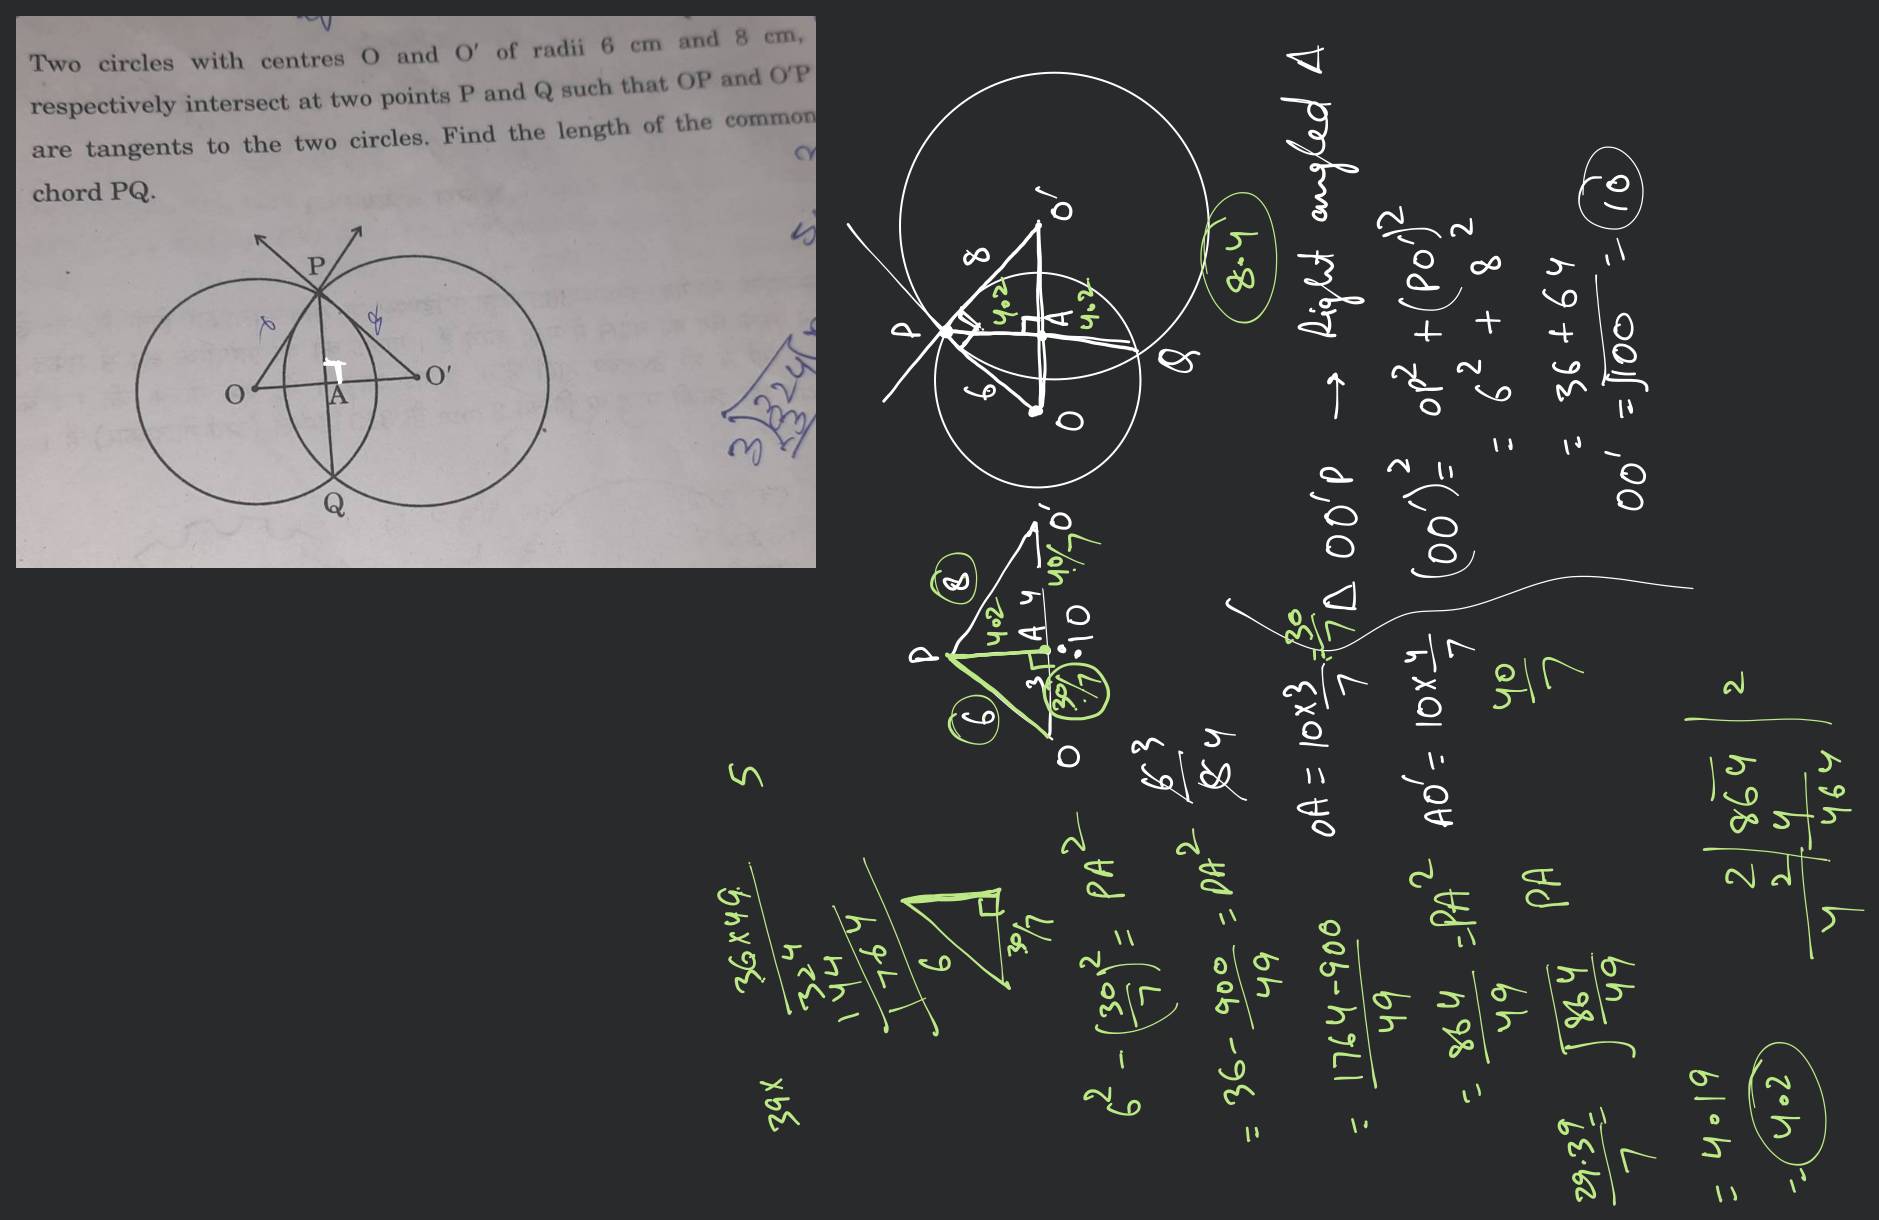 Two circles with centres O and O' of radii 6 cm and 8 cm,
respectively intersect at two points P and Q such that OP and O'P
are tangents to the two circles. Find the length of the common
chord PQ.
P
8
O
A
O'
Q
3
324
O'
8
P
4.2
A
4.2
6
Q
O
8.4
△ OO'P → Right angled △
(OO')² = OP² + (PO')²
= 6² + 8²
= 36 + 64
OO' = √100 = 10
P
8
6
4.2
O
3
A
4
O'
30/7
40/7
10
6 3
8 4
OA = 10 × 3/7 = 30/7
AO' = 10 × 4/7
40/7
36 × 49
324
144
1764
39 x
5
6
30/7
6² - (30/7)² = PA²
= 36 - 900/49 = PA²
= 1764 - 900/49
= 864/49 = PA²
√864/49 PA
29.39/7 =
= 4.19
= 4.2
2 | 864 | 2
2 | 4
4 | 464